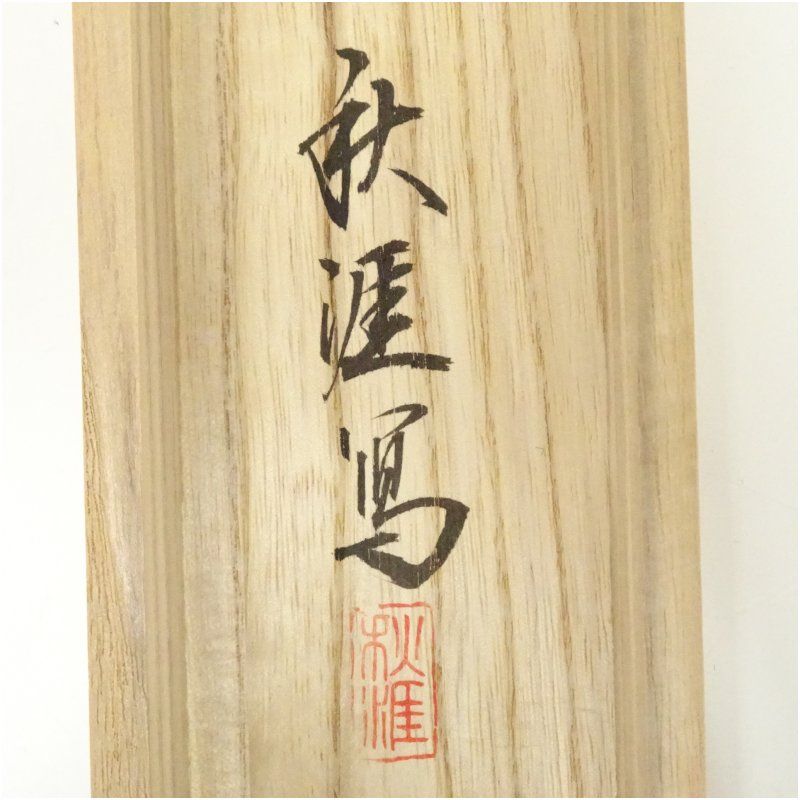 秋涯写
秋涯